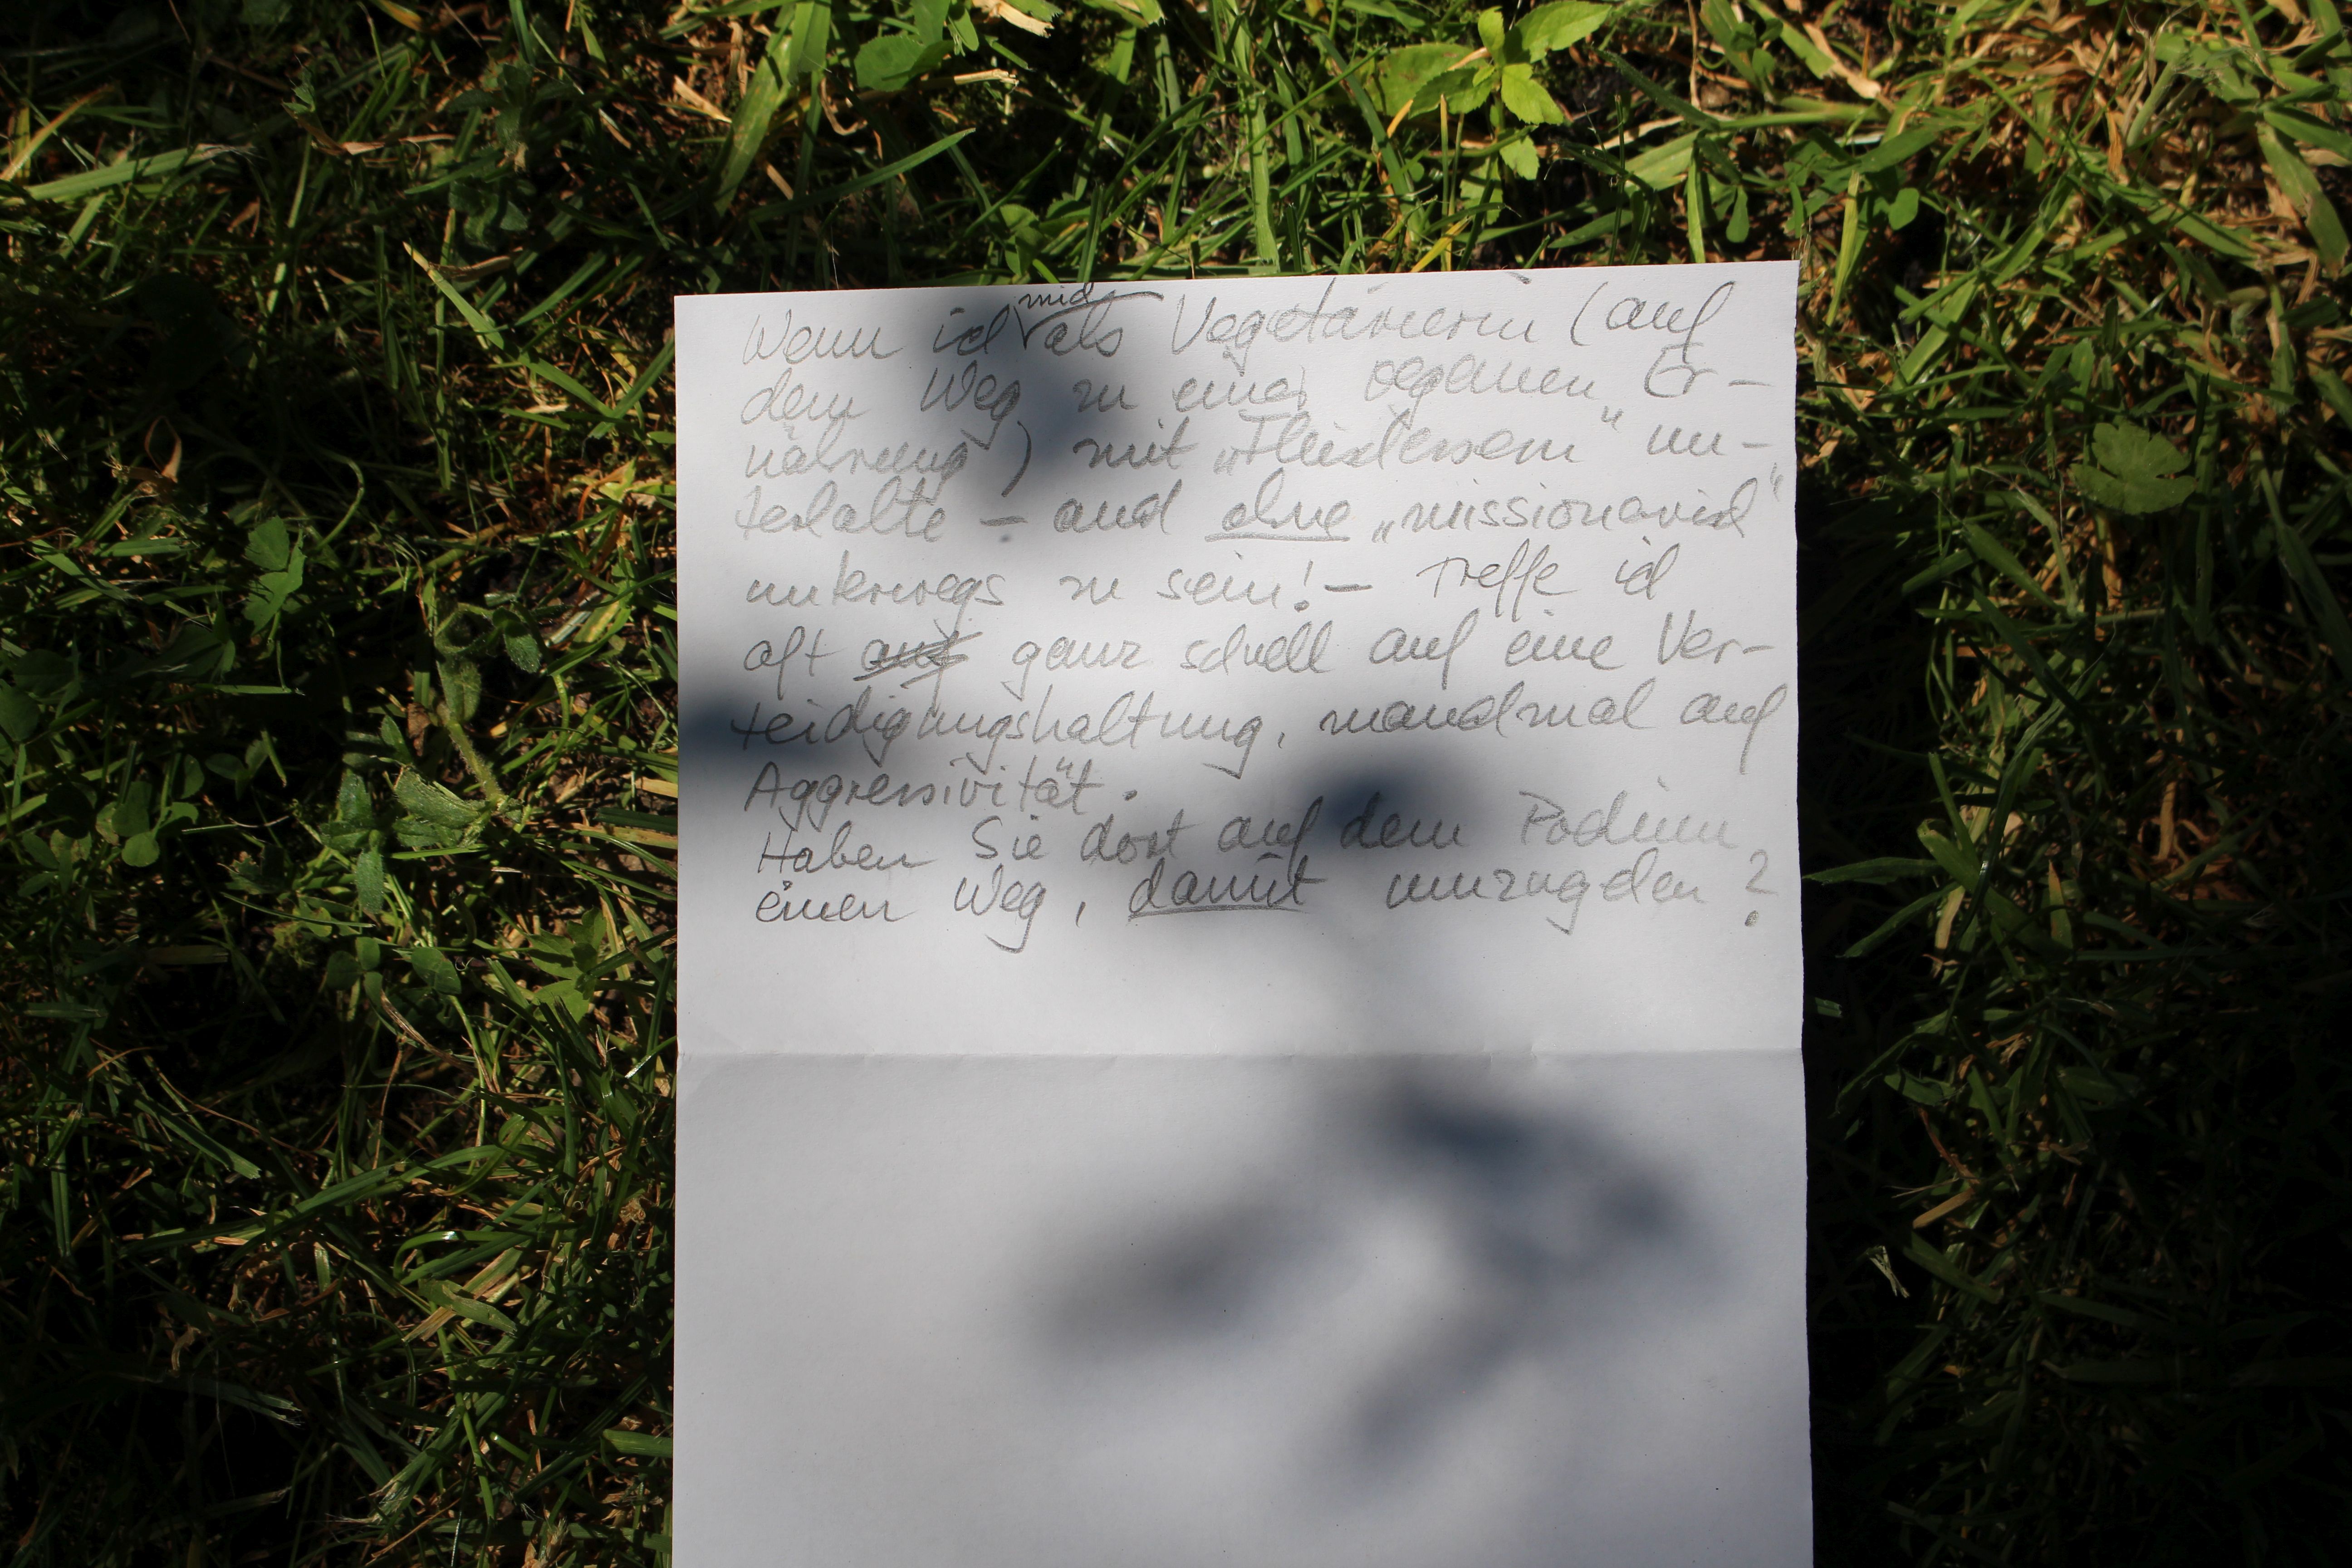 Wenn ich mich als Vegetarierin (auf
dem Weg zu einer veganen Er-
nährung) mit „Fleischessern“ un-
terhalte – auch ohne „missionarisch“
unterwegs zu sein! – treffe ich
oft auf ganz schnell auf eine Ver-
teidigungshaltung, manchmal auf
Aggressivität.
Haben Sie dort auf dem Podium
einen Weg, damit umzugehen?